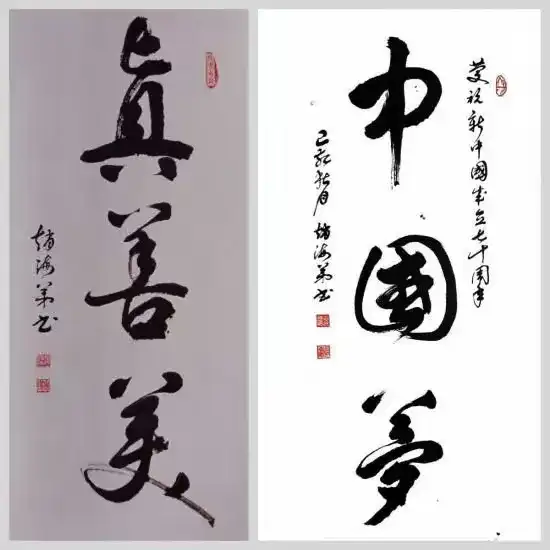 眞善美
趙海弟书
慶祝新中國成立七十周年
中國夢
己亥秋月 趙海弟书